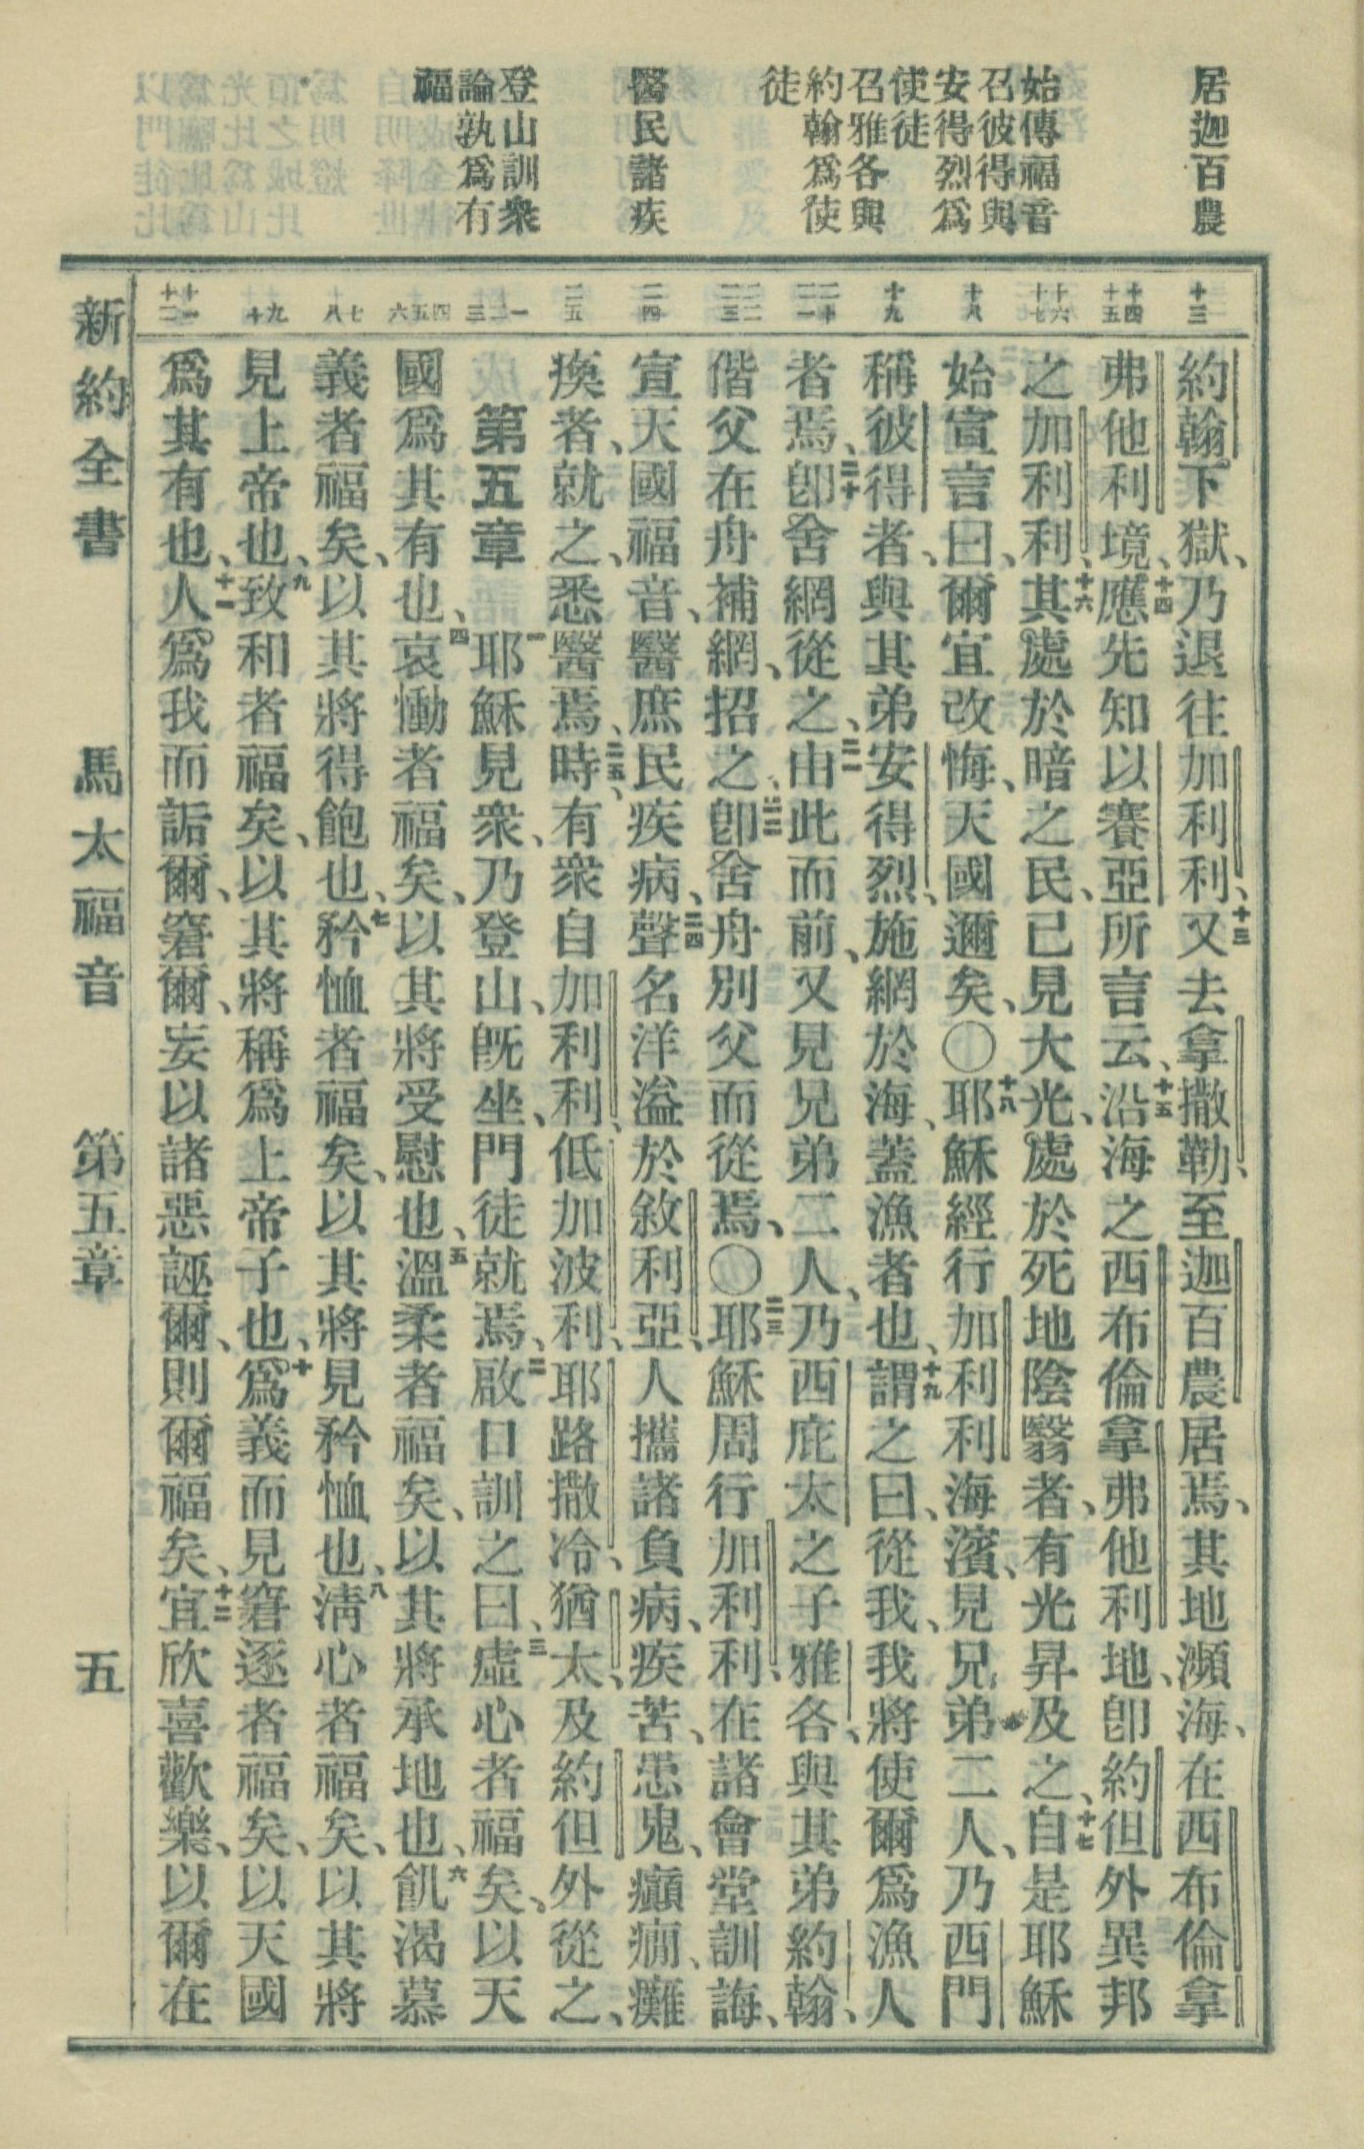 居迦百農
始傳福音
召彼得與
安得烈爲
使徒
召雅各與
約翰爲使
徒
醫民諸疾
登山訓衆
論孰爲有
福
十三
十四
十五
十六
十七
十八
十九
二十
二一
二二
二三
二四
二五
一
二
三
四
五
六
七
八
九
十
十一
十二
約翰下獄、乃退往加利利、十三又去拿撒勒、至迦百農居焉、其地瀕海、在西布倫拿
弗他利境、十四應先知以賽亞所言云、十五沿海之西布倫拿弗他利地、卽約但外異邦
之加利利、十六其處於暗之民、已見大光、處於死地陰翳者、有光昇及之、十七自是耶穌
始宣言曰、爾宜改悔、天國邇矣、〇十八耶穌經行加利利海濱、見兄弟二人、乃西門
稱彼得者、與其弟安得烈、施網於海、蓋漁者也、十九謂之曰、從我、我將使爾爲漁人
者焉、二十卽舍網從之、二一由此而前、又見兄弟二人、乃西庇太之子雅各、與其弟約翰、
偕父在舟補網、招之、二二卽舍舟別父而從焉、〇二三耶穌周行加利利、在諸會堂訓誨、
宣天國福音、醫庶民疾病、二四聲名洋溢於敘利亞、人攜諸負病、疾苦、患鬼、癲癇、癱
瘓者、就之、悉醫焉、二五時、有衆自加利利、低加波利、耶路撒冷、猶太、及約但外從之、
第五章 一耶穌見衆、乃登山、旣坐、門徒就焉、二啟口訓之曰、三虛心者福矣、以天
國爲其有也、四哀慟者福矣、以其將受慰也、五溫柔者福矣、以其將承地也、六飢渴慕
義者福矣、以其將得飽也、七矜恤者福矣、以其將見矜恤也、八淸心者福矣、以其將
見上帝也、九致和者福矣、以其將稱爲上帝子也、十爲義而見窘逐者福矣、以天國
爲其有也、十一人爲我而詬爾、窘爾、妄以諸惡誣爾、則爾福矣、十二宜欣喜歡樂、以爾在
新約全書 馬太福音 第五章 五